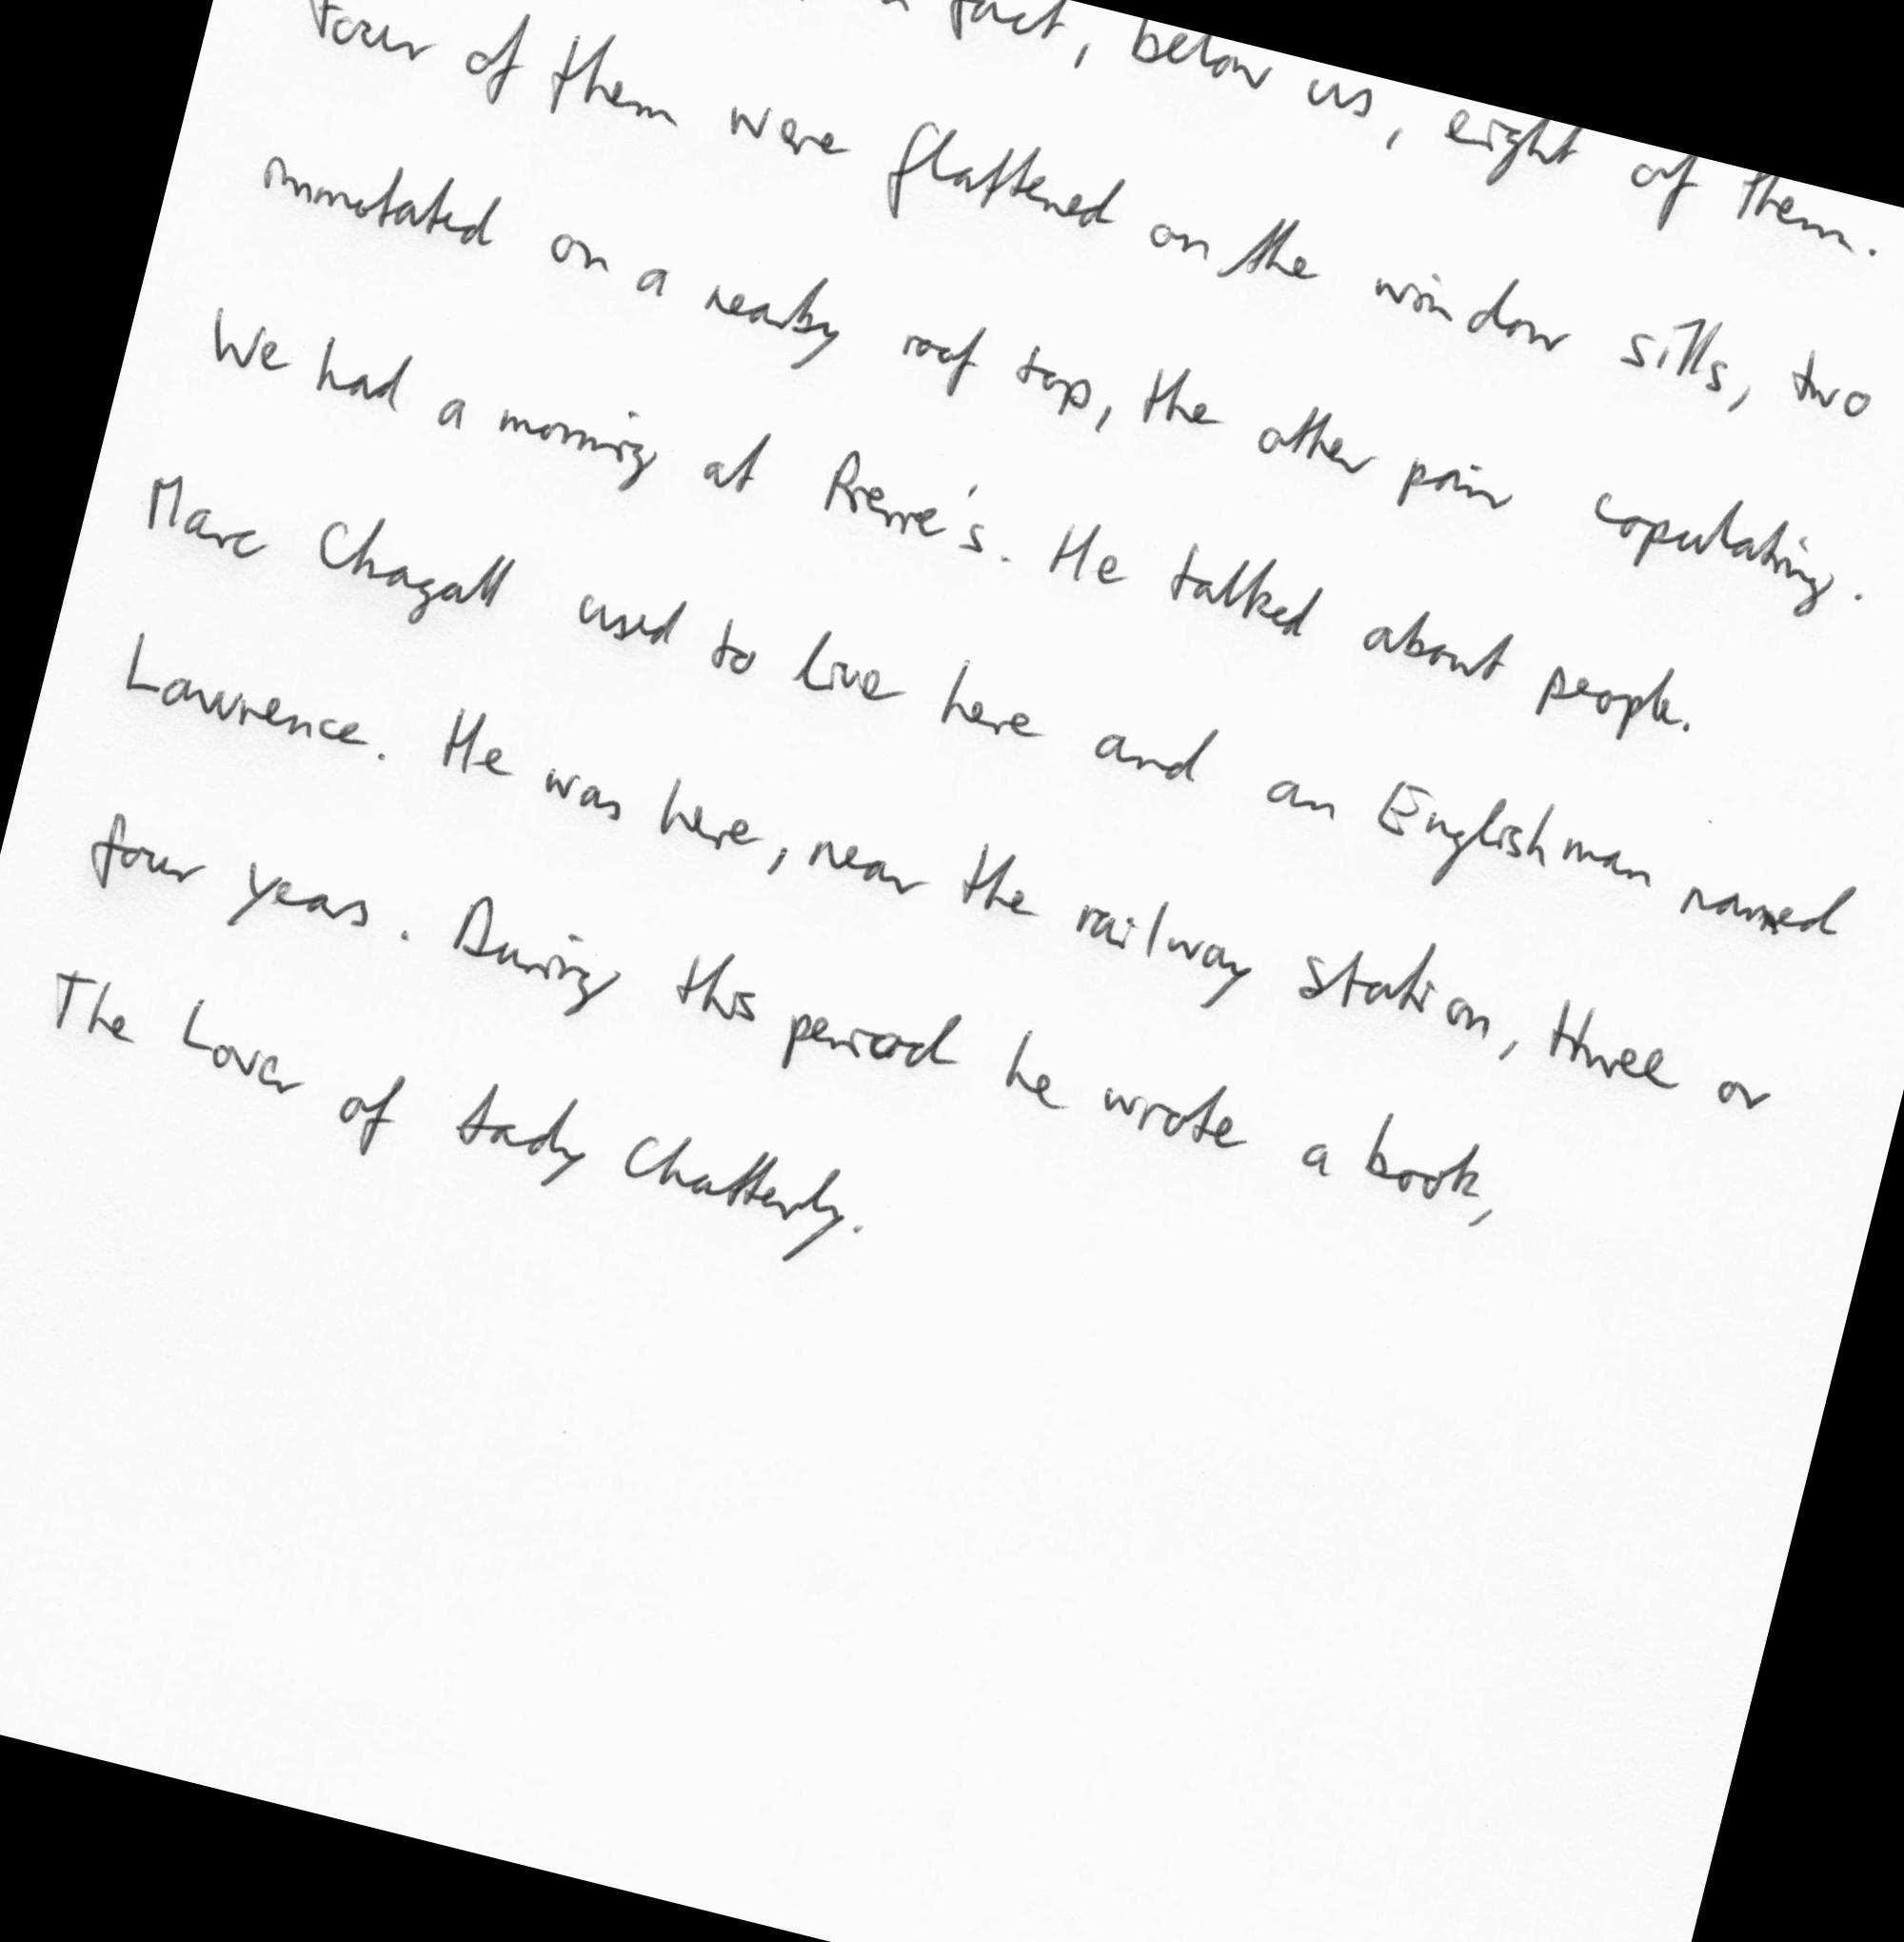 fact, below us, eight of them.
Four of them were flattened on the window sills, two
immolated on a nearby roof top, the other pair copulating.
We had a morning at Pierre's. He talked about people.
Marc Chagall used to live here and an Englishman named
Lawrence. He was here, near the railway station, three or
four years. During this period he wrote a book,
The Lover of Lady Chatterly.